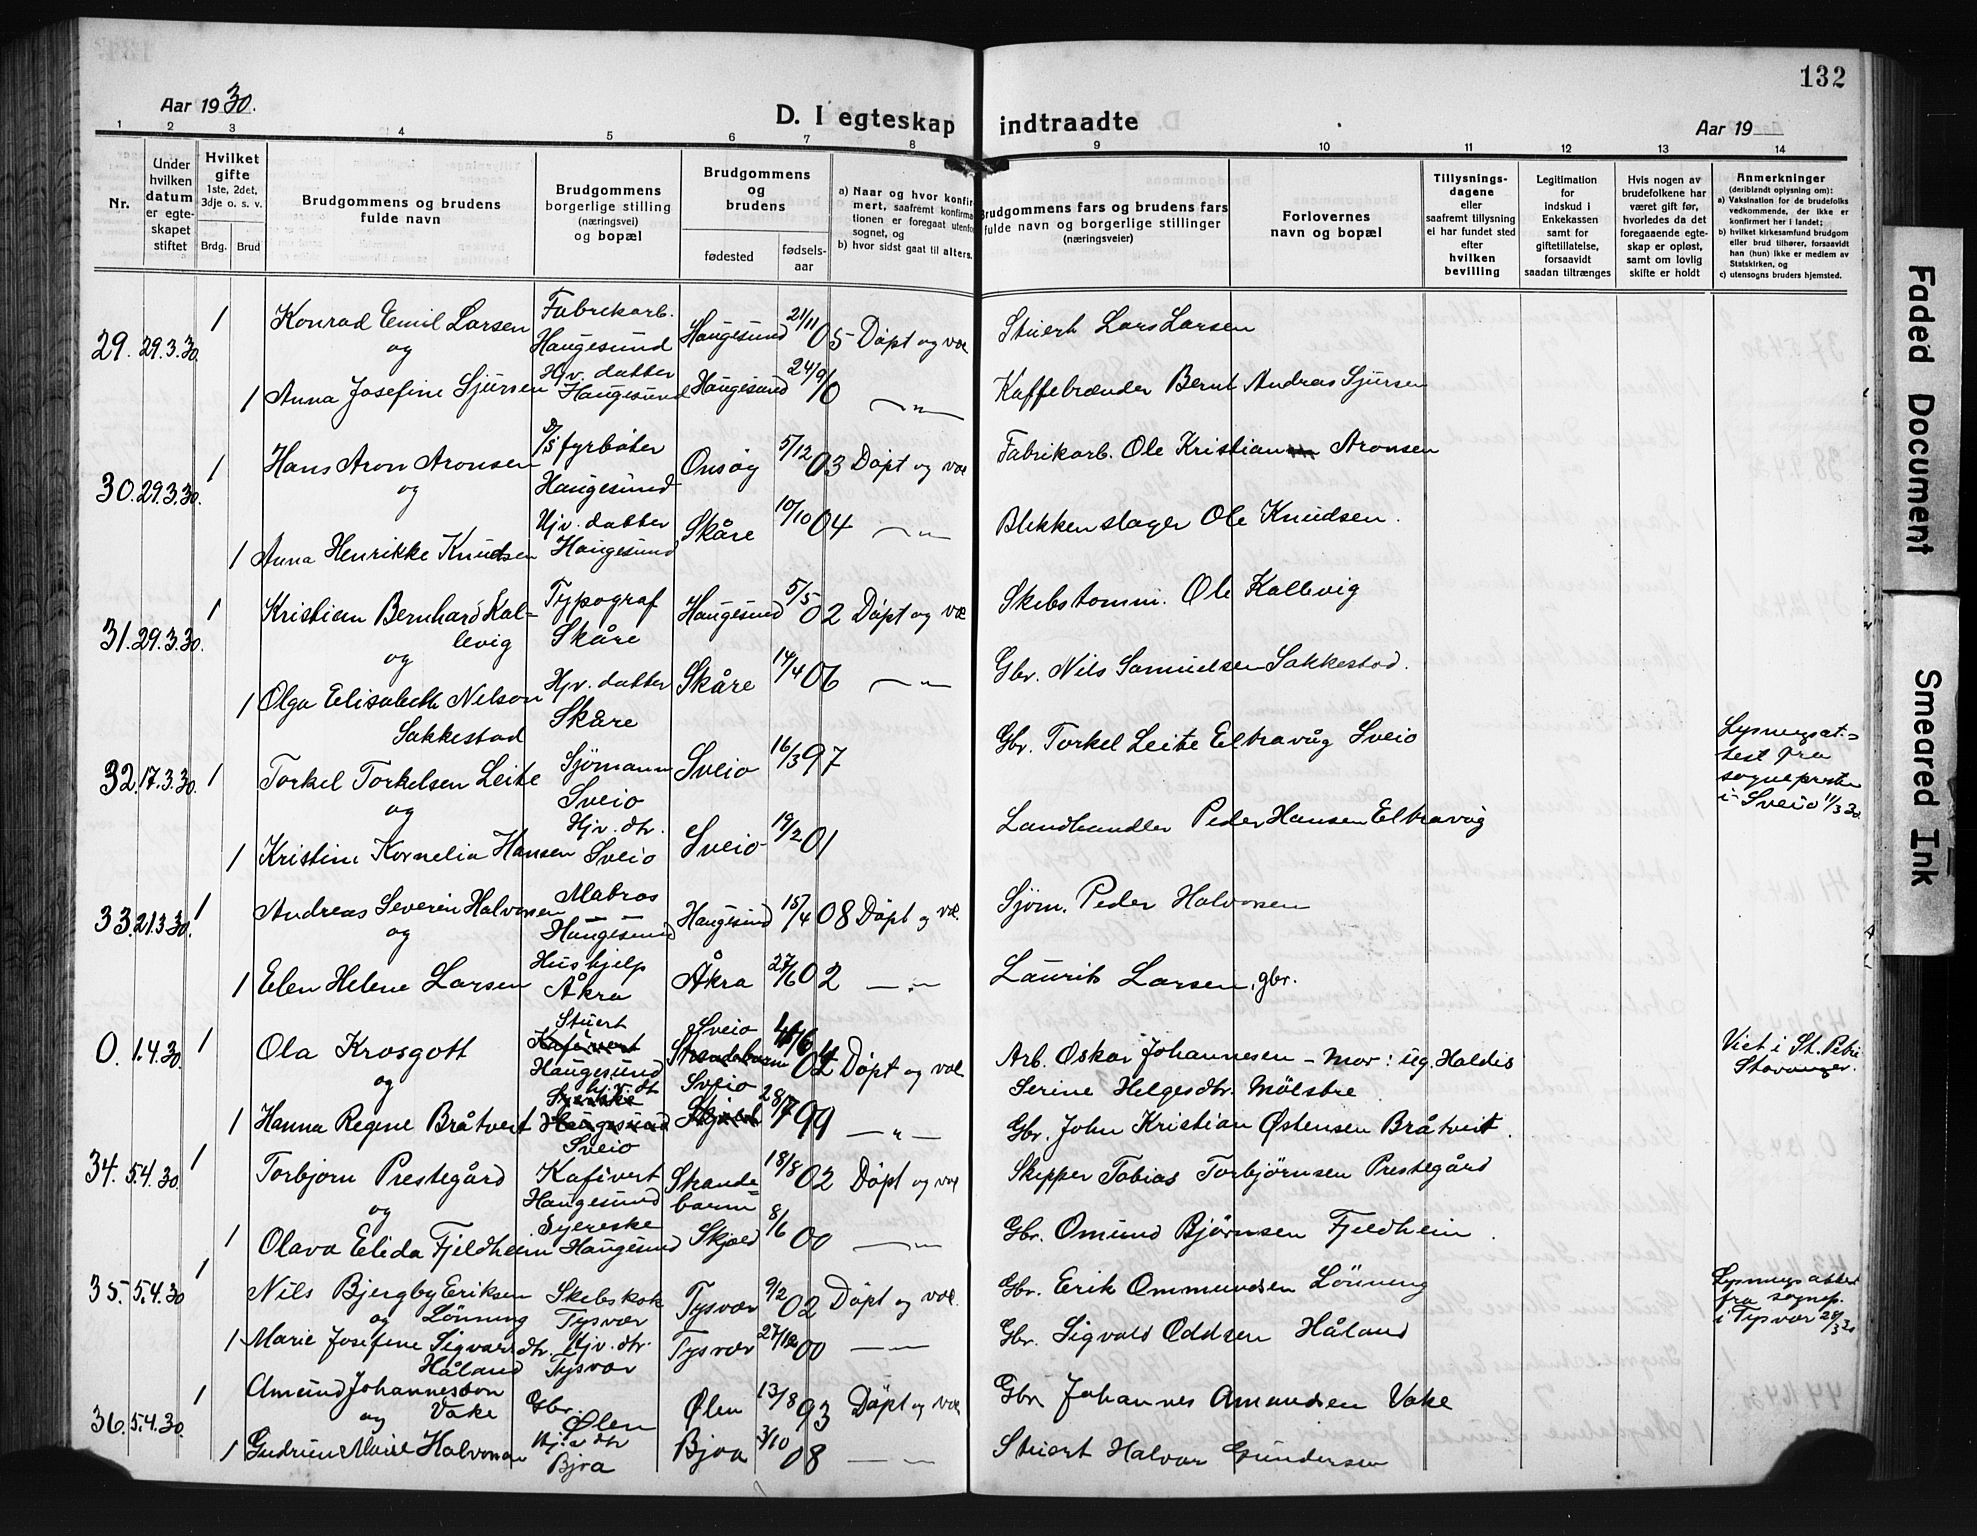 132
Aar 1930.
D. I egteskap indtraadte
Aar 19
1 2 3 4 5 6 7 8 9 10 11 12 13 14
Nr.
Under hvilken datum er egteskapet stiftet
Hvilket gifte 1ste, 2det, 3dje o. s. v.
Brdg. Brud
Brudgommens og brudens fulde navn
Brudgommens borgerlige stilling (næringsvei) og bopæl
Brudgommens og brudens
fødested fødsels-aar
a) Naar og hvor konfirmert, saafremt konfirmationen er foregaat utenfor sognet, og
b) hvor sidst gaat til alters.
Brudgommens fars og brudens fars fulde navn og borgerlige stillinger (næringsveier)
Forlovernes navn og bopæl
Tillysnings-dagene eller saafremt tillysning ei har fundet sted efter hvilken bevilling
Legitimation for indskud i Enkekassen samt for giftetillatelse, forsaavidt saadan tiltrænges
Hvis nogen av brudefolkene har været gift før, hvorledes da det foregaaende egteskap er opløst, samt om lovlig skifte er holdt
Anmerkninger (deriblandt oplysning om):
a) Vaksination for de brudefolks vedkommende, der ikke er konfirmert her i landet;
b) hvilket kirkesamfund brudgom eller brud tilhører, forsaavidt han (hun) ikke er medlem av Statskirken, og
c) utensogns bruders hjemsted.
29. 29.3.30. 1 Konrad Emil Larsen Fabrikarb. Haugesund Haugesund 21/11 05 Döpt og vac Stuert Lars Larsen
og
1 Anna Josefine Sjursen Hjv. datter Haugesund Haugesund 24/9 10 —"— Kaffebrænder Bernt Andreas Sjursen
30. 29.3.30. 1 Hans Aron Aronsen D/S fyrböter Haugesund Onsøy 5/12 03 Döpt og vac Fabrikarb. Ole Kristian Aronsen
og
1 Anna Henrikke Knudsen Hjv. datter Haugesund Skåre 10/10 04 —"— Blikkenslager Ole Knudsen.
31. 29.3.30. 1 Kristian Bernhard Kallevig Typograf Skåre Haugesund 5/5 02 Döpt og væ Skibstömm. Ole Kallevig
og
1 Olga Elisabeth Nelson Sakkestad Hjv. datter Skåre Skåre 14/4 06 —"— Gbr. Nils Samuelsen Sakkestad.
32. 17.3.30. 1 Torkel Torkelsen Leite Sjömann Sveio Sveio 16/3 97 Gbr. Torkel Leite Eltravåg Sveio Lysningsattest fra sogneprsten i Sveio 11/3 30.
og
1 Kristine Kornelia Hansen Hjv. dtr. Sveio Sveio 19/2 01 Landhandler Peder Hansen Eltravåg
33. 21.3.30. 1 Andreas Severin Halvorsen Matros Haugesund Haugesund 15/4 08 Döpt og væ. Sjöm. Peder Halvorsen
og
1 Elen Helene Larsen Hushjelp Åkra Åkra 27/6 02 —"— Laurits Larsen, gbr.
0. 1.4.30. 1 Ola Krosgott Stuert Haugesund Sveio Döpt og vac Arb. Oskar Johannesen - Mor: ug. Haldis Serine Helgesdtr. Mölstre Viet i St. Petri Stavanger.
og
1 Hanna Regine Bråtveit hjv. dtr Sveio Sveio 28/7 99 —"— Gbr. John Kristian Østensen Bråtveit.
34. 5.4.30. 1 Torbjorn Prestegård Kafévert Haugesund Strandebarm 18/8 02 Döpt og vac Skipper Tobias Torbjörnsen Prestegård
og
1 Olava Elida Fjeldheim Syerske Haugesund Skjold 8/6 00 —"— Gbr. Omund Bjørnsen Fjeldheim.
35. 5.4.30 1 Nils Bjergby Eriksen Lönning Skibskok Tysvær Tysvær 9/2 02 Döpt og vac. Gbr. Erik Ommundsen Lönning Lysningsattest fra sognep. i Tysvær 28/3 30
og
1 Marie Josefine Sigvardsdtr. Håland Hjv. dtr. Tysvær Tysvær 27/12 00 —"— Gbr. Sigvald Oddsen Håland
36. 5.4.30. 1 Amund Johanneson Vake Gbr. Ølen Ølen 13/8 93 Döpt og vac Gbr Johannes Amundsen Vake
og
1 Gudrun Marie Halvorsen Hjv dtr Bjoa Bjoa 3/10 08 —"— Stuert Halvor Gundersen
Faded Document
Smeared Ink